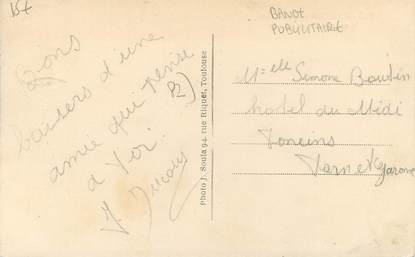 15€
BANDE
PUBLICITAIRE
Bons
baisers d'une
amie qui pense
à toi.
Photo J. Soula 94, rue Riquet, Toulouse
Melle Simone Boutin
hotel du Midi
Tonneins
Tarn et Garonne